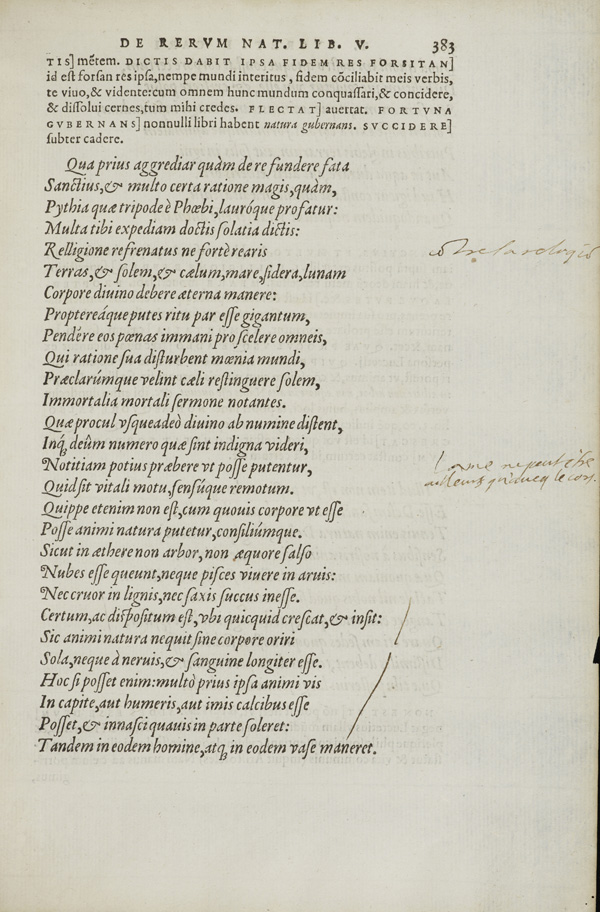 DE RERVM NAT. LIB. V. 383
TIS] mẽtem. DICTIS DABIT IPSA FIDEM RES FORSITAN]
id est forsan res ipsa, nempe mundi interitus, fidem cõciliabit meis verbis,
te viuo, & vidente: cum omnem hunc mundum conquassari, & concidere,
& dissolui cernes, tum mihi credes. FLECTAT] auertat. FORTVNA
GVBERNANS] nonnulli libri habent natura gubernans. SVCCIDERE]
subter cadere.
Qua prius aggrediar quàm de re fundere fata
Sanctius, & multo certa ratione magis, quàm,
Pythia quæ tripode è Phœbi, lauróque profatur:
Multa tibi expediam doctis solatia dictis:
Relligione refrenatus ne fortè rearis
cõtre la religiõ
Terras, & solem, & cælum, mare, sidera, lunam
Corpore diuino debere æterna manere:
Proptereáque putes ritu par esse gigantum,
Pendére eos pœnas immani pro scelere omneis,
Qui ratione sua disturbent mœnia mundi,
Præclarúmque velint cæli restinguere solem,
Immortalia mortali sermone notantes.
Quæ procul vsqueadeò diuino ab numine distent,
Inq́; deûm numero quæ sint indigna videri,
Notitiam potius præbere vt posse putentur,
l ame ne peut estre
Quid sit vitali motu, sensúque remotum.
ailleurs qu'aueq le cors
Quippe etenim non est, cum quouis corpore vt esse
Posse animi natura putetur, consiliúmque.
Sicut in æthere non arbor, non æquore salso
Nubes esse queunt, neque pisces viuere in aruis:
Nec cruor in lignis, nec saxis succus inesse.
Certum, ac dispositum est, vbi quicquid crescat, & insit:
Sic animi natura nequit sine corpore oriri
Sola, neque à neruis, & sanguine longiter esse.
Hoc si posset enim: multò prius ipsa animi vis
In capite, aut humeris, aut imis calcibus esse
Posset, & innasci quauis in parte soleret:
Tandem in eodem homine, atq; in eodem vase maneret.